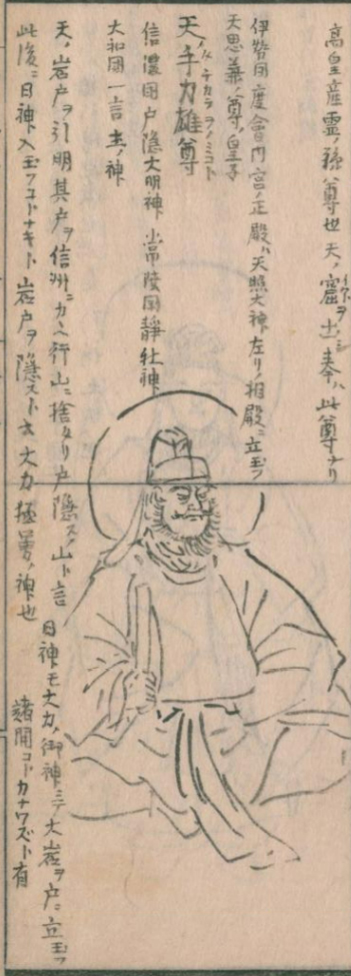 高皇産霊ノ孫尊也天ノ窟ヲ出シ奉ハ此尊ナリ
伊勢国度會内宮ノ正殿ハ天照大神左リノ相殿ニ立玉フ
天思兼ノ尊ノ皇子
天ノ手力雄尊
タチカラヲノミコト
信濃国戸隠大明神 常陸国静社神
大和国一言主ノ神
天ノ岩戸ヲ引明其戸ヲ信州ニカヘ行山ニ捨タリ戸隠ス山ト言
日神モ大力ノ御神ニテ大岩ヲ戸ニ立玉フ
此後ニ日神入玉フコトナキト岩戸ヲ隠スト云大力極勇ノ神也
諸開コトカナワズト有